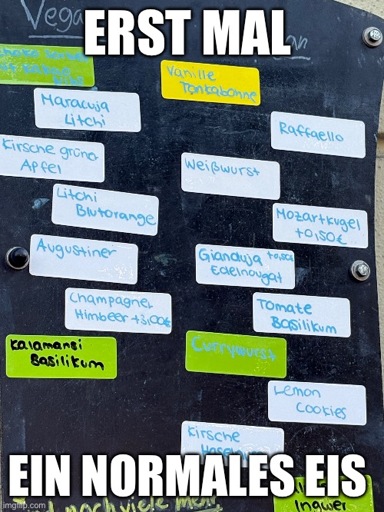 Vega
ERST MAL
Vanille
Tonkabohne
Maracuja
Litchi
Raffaello
Kirsche grüner
Apfel
Weißwurst
Litchi
Blutorange
Mozartkugel
+0,50€
Augustiner
Gianduja +0,50€
Edelnougat
Champagner
Himbeer +3,00€
Tomate
Basilikum
Kalamansi
Basilikum
Currywurst
Lemon
Cookies
Kirsche
EIN NORMALES EIS
Ingwer
noch viele mehr
imgflip.com